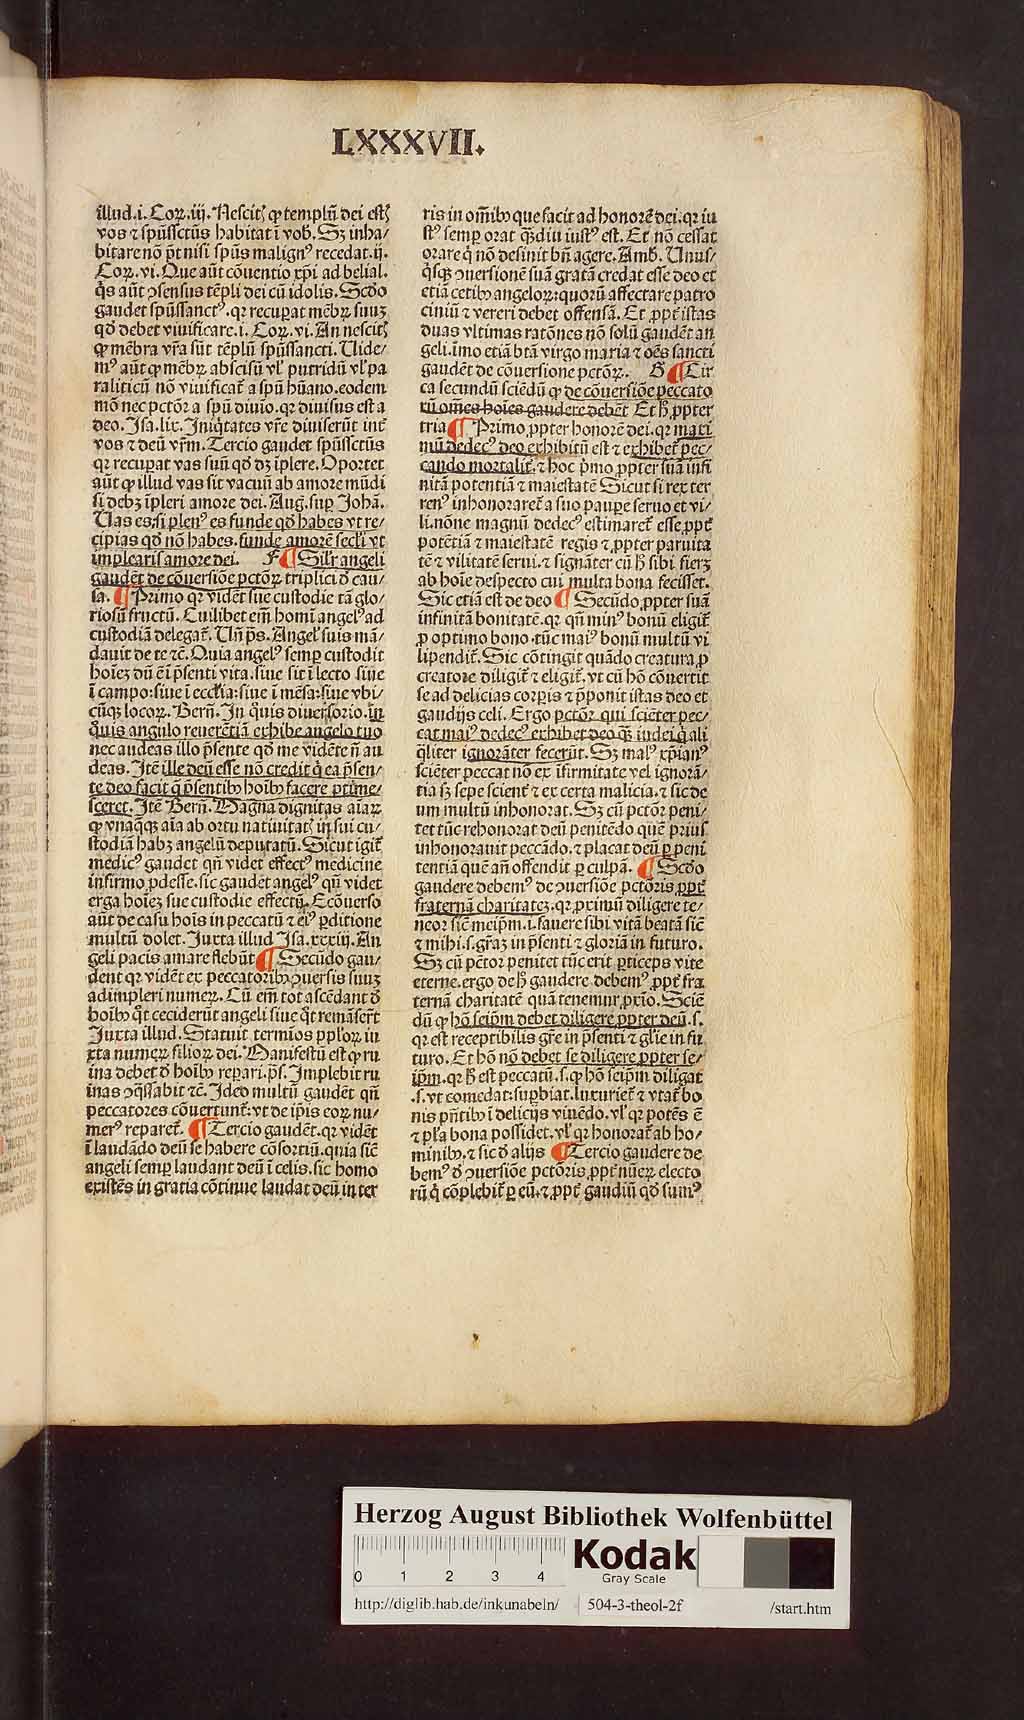 LXXXVII.
illud.i. Coꝝ.iij. Nescitꝭ ꝙ templū dei estꝭ
vos ⁊ spūssctūs habitat ī vob̄. Sꝫ inha⸗
bitare nō pōt nisi spūs malignꝰ recedat.ij.
Coꝝ.vi. Que aūt cōuentio xp̄i ad belial.
q̇s aūt ɔsensus tēpli dei cū idolis. Scḋo
gaudet spūssanctꝰ.qꝛ recuꝑat mēbꝝ suuꝫ
qḋ debet viuificare.i. Coꝝ.vi. An nescitꝭ
ꝙ mēbra vr̄a sūt tēplū spūssancti. Uide⸗
mꝰ aūt ꝙ mēbꝝ abscisū vl̓ putridū vl̓ pa
raliticū nō viuificat̄ a spū hūano.eodem
mō nec pctōꝝ a spū diuīo.qꝛ diuisus est a
deo. Isa.lix. Iniq̇tates vr̄e diuiserūt int̄
vos ⁊ deū vr̄m. Tercio gaudet spūssctūs
qꝛ recuꝑat vas suū qḋ dꝫ īplere. Oportet
aūt ꝙ illud vas sit vacuū ab amore mūdi
si debꝫ īpleri amore dei. Aug̃.suꝑ Johā.
Uas es.si plenꝰ es funde qḋ habes vt re⸗
cipias qḋ nō habes. funde amorē secl̓i vt
implearis amore dei. F ¶ Sil̓r angeli
gaudēt de cōuersiōe pctōꝝ triplici ḋ cau⸗
sa. ¶ Primo qꝛ vidēt sue custodie tā glo⸗
riosū fructū. Cuilibet em̄ homī angelꝰ ad
custodiā delegat̄. Un̄ p̄s. Angel̓ suis mā⸗
dauit de te ⁊c̄. Quia angelꝰ semꝑ custodit
hoīeꝫ dū ē ī p̄senti vita.siue sit ī lecto siue
ī campo:siue ī eccl̓ia:siue ī mēsa:siue vbi⸗
cūqꝫ locoꝝ. Bern̄. In q̇uis diuersorio.in
q̇uis angulo reuerētiā exhibe angelo tuo
nec audeas illo p̄sente qḋ me vidēte n̄ au
deas. Itē ille deū esse nō credit q̇ ea p̄sen⸗
te deo facit q̄ p̄sentibꝰ hoībꝰ facere ꝑtime⸗
sceret. Itē Bern̄. Magna dignitas aīaꝝ
ꝙ vnaq̄qꝫ aīa ab ortu natiuitatꝭ in sui cu⸗
stodiā habꝫ angelū deputatū. Sicut igit̄
medicꝰ gaudet qn̄ videt effectꝰ medicine
infirmo ꝓdesse.sic gaudet angelꝰ qn̄ videt
erga hoīeꝫ sue custodie effectū. Ecōuerso
aūt de casu hoīs in peccatū ⁊ eiꝰ ꝑditione
multū dolet. Juxta illud Isa.xxxiij. An
geli pacis amare flebūt ¶ Secūdo gau⸗
dent qꝛ vidēt ex peccatoribꝰ ɔuersis suuꝫ
adimpleri numeꝝ. Cū em̄ tot ascēdant ḋ
hoībꝰ q̊t ceciderūt angeli siue q̊t remāser̄t
Juxta illud. Statuit termīos pplōꝝ iu
xta numeꝝ filioꝝ dei. Manifestū est ꝙ ru
ina debet ḋ hoībꝰ repari. p̄s. Implebit ru
inas ɔq̄ssabit ⁊c̄. Ideo multū gaudēt qn̄
peccatores cōuertunt̄:vt de ip̄is eoꝝ nu⸗
merꝰ reparet̄. ¶ Tercio gaudēt.qꝛ vidēt
ī laudādo deū se habere cōsortiū.quia sic̄
angeli semꝑ laudant deū ī celis.sic homo
existēs in gratia cōtinue laudat deū in ter
ris in om̄ibꝰ que facit ad honorē dei.qꝛ iu
stꝰ semꝑ orat q̄diu iustꝰ est. Et nō cessat
orare q̇ nō desinit bn̄ agere. Amb̄. Unus⸗
q̇sqꝫ ɔuersionē suā gratā credat esse deo et
etiā cetibꝰ angeloꝝ:quorū affectare patro
ciniū ⁊ vereri debet offensā. Et ꝓpt̄ istas
duas vltimas ratōnes nō solū gaudēt an
geli.imo etiā btā virgo maria ⁊ oēs sancti
gaudēt de cōuersione pctōꝝ. G ¶ Cir
ca secundū sciēdū ꝙ de cōuersiōe peccato
rū om̄es hoīes gaudere debēt Et h̄ ꝓpter
tria ¶ Primo ꝓpter honorē dei.qꝛ maxi
mū dedecꝰ deo exhibitū est ⁊ exhibet̄ pec⸗
cando mortalit̄.⁊ hoc p̄mo ꝓpter suā infi
nitā potentiā ⁊ maiestatē Sicut si rex ter
renꝰ inhonoraret̄ a suo pauꝑe seruo et vi⸗
li.nōne magnū dedecꝰ estimaret̄ esse ꝓpt̄
potētiā ⁊ maiestatē regis ⁊ ꝓpter paruita
tē ⁊ vilitatē serui.⁊ signāter cū h̄ sibi fieꝝ
ab hoīe despecto cui multa bona fecisset.
Sic etiā est de deo ¶ Secūdo ꝓpter suā
infinitā bonitatē.qꝛ qn̄ minꝰ bonū eligit̄
ꝓ optimo bono.tūc maiꝰ bonū multū vi
lipendit̄. Sic cōtingit quādo creatura ꝓ
creatore diligit̄ ⁊ eligit̄.vt cū hō cōuertit
se ad delicias corꝑis ⁊ p̄ponit istas deo et
gaudijs celi. Ergo pctōꝝ qui sciēter pec⸗
cat maiꝰ dedecꝰ exhibet deo q̄ȝ iudei q̇ ali
q̄liter ignorāter fecerūt. Sꝫ malꝰ xp̄ianꝰ
sciēter peccat nō ex īfirmitate vel ignorā⸗
tia sꝫ sepe scient̄ ⁊ ex certa malicia.⁊ sic de
um multū inhonorat. Sꝫ cū pctōꝝ peni⸗
tet tūc rehonorat deū penitēdo quē prius
inhonorauit peccādo.⁊ placat deū ꝑ peni
tentiā quē an̄ offendit ꝑ culpā. ¶ Scḋo
gaudere debemꝰ de ɔuersiōe pctōris ꝓpt̄
fraternā charitateꝫ.qꝛ ꝓximū diligere te⸗
neor sic̄ meip̄m.i.fauere sibi vitā beatā sic̄
⁊ mihi.s.gr̄aꝫ in p̄senti ⁊ gloriā in futuro.
Sꝫ cū pctōr penitet tūc erit ꝑticeps vite
eterne.ergo de h̄ gaudere debemꝰ ꝓpt̄ fra
ternā charitatē quā tenemur ꝓxīo. Sciē
dū ꝙ hō seip̄m debet diligere ꝓpter deū.s.
qꝛ est receptibilis gr̄e in p̄senti ⁊ gl̓ie in fu
turo. Et hō nō debet se diligere ꝓpter se⸗
ip̄m.qꝛ h̄ est peccatū.s.ꝙ hō seip̄m diligat
.s.vt comedat:suꝑbiat.luxuriet̄ ⁊ vtat̄ bo
nis p̄ntibꝰ ī delicijs viuēdo.vl̓ qꝛ potēs ē
⁊ pl̓a bona possidet.vl̓ qꝛ honorat̄ ab ho⸗
minibꝰ.⁊ sic ḋ alijs ¶ Tercio gaudere de
bemꝰ ḋ ɔuersiōe pctōris.ꝓpt̄ nūeꝝ electo
rū q̇ cōplebit̄ ꝑ eū.⁊ ꝓpt̄ gaudiū qḋ sumꝰ
Herzog August Bibliothek Wolfenbüttel
0 1 2 3 4
Kodak
Gray Scale
http://diglib.hab.de/inkunabeln/ 504-3-theol-2f /start.htm